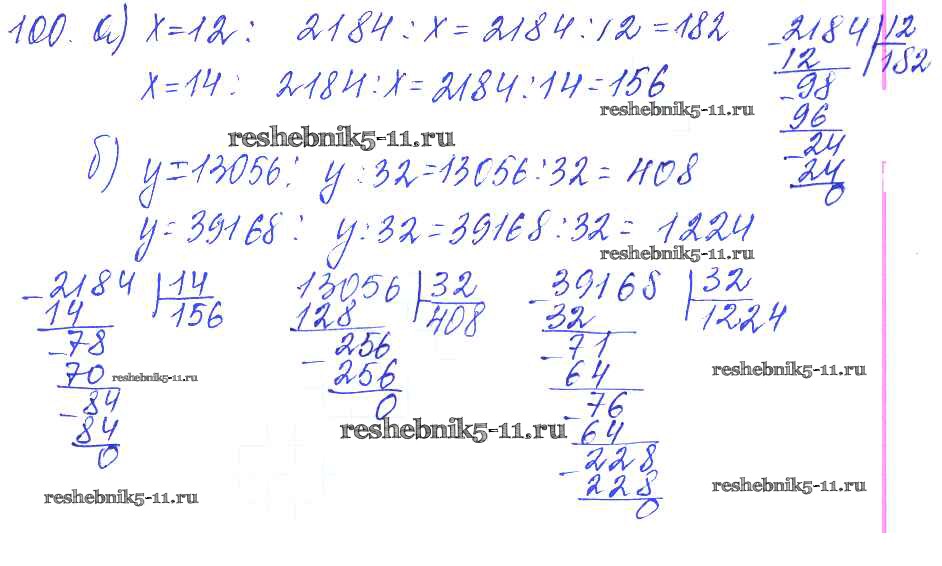 100. а) x=12: 2184:x=2184:12=182
x=14: 2184:x=2184:14=156
reshebnik5-11.ru
reshebnik5-11.ru
-2184 12
12 182
-98
96
-24
24
0
б) y=13056: y:32=13056:32=408
y=39168: y:32=39168:32=1224
reshebnik5-11.ru
-2184 14
14 156
-78
70
-84
84
0
reshebnik5-11.ru
13056 32
128 408
-256
256
0
reshebnik5-11.ru
-39168 32
32 1224
-71
64
-76
64
-228
228
0
reshebnik5-11.ru
reshebnik5-11.ru
reshebnik5-11.ru